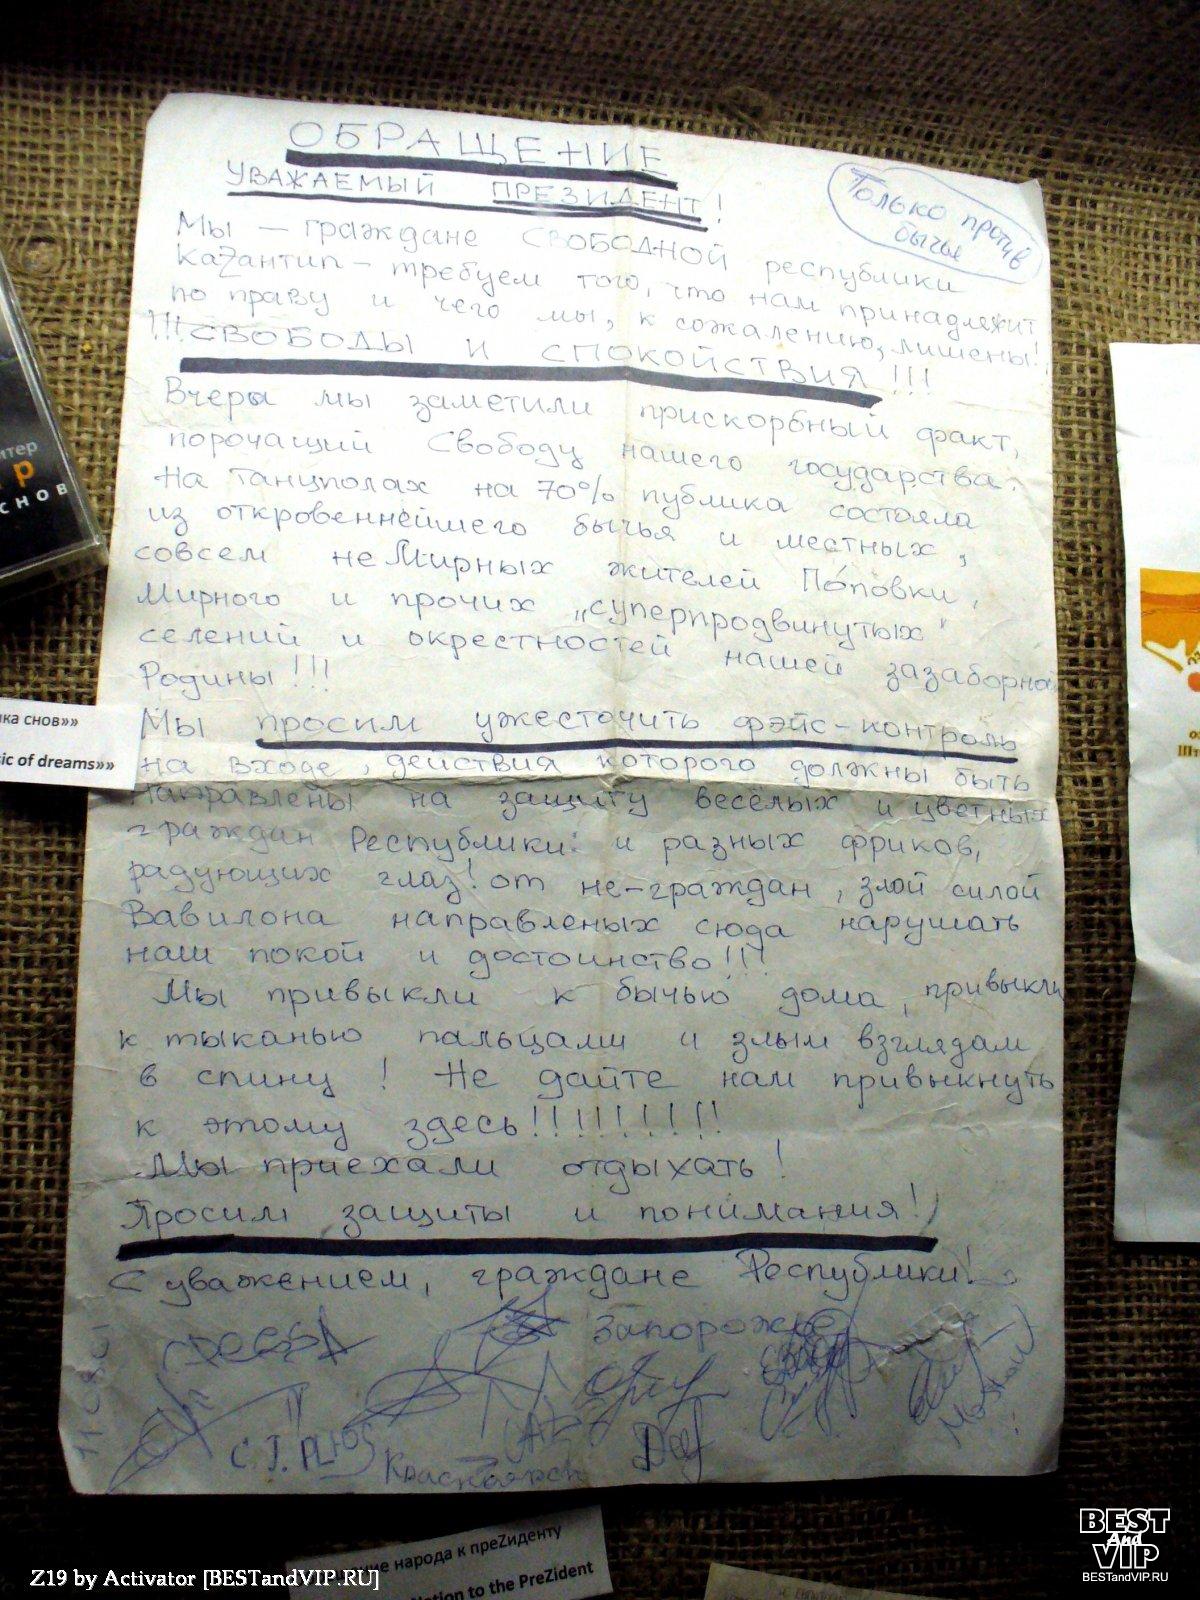 ОБРАЩЕНИЕ
УВАЖАЕМЫЙ ПРЕЗИДЕНТ!
Только против
бычья
Мы – граждане СВОБОДНОЙ республики
каZантип – требуем того, что нам принадлежит
по праву и чего мы, к сожалению, лишены!
!!! СВОБОДЫ И СПОКОЙСТВИЯ !!!
Вчера мы заметили прискорбный факт,
порочащий Свободу нашего государства.
На танцполах на 70% публика состояла
из откровеннейшего бычья и местных,
совсем неМирных жителей Поповки,
Мирного и прочих „суперпродвинутых"
селений и окрестностей нашей зазаборной
Родины!!!
Мы просим ужесточить фэйс-контроль
на входе, действия которого должны быть
направлены на защиту весёлых и цветных
граждан Республики: и разных фриков,
радующих глаз! от не-граждан, злой силой
Вавилона направленых сюда нарушать
наш покой и достоинство!!!
Мы привыкли к бычью дома, привыкли
к тыканью пальцами и злым взглядам
в спину! Не дайте нам привыкнуть
к этому здесь!!!!!!!!!
Мы приехали отдыхать!
Просим защиты и понимания!
С уважением, граждане Республики!
Запорожье
C.J. PLHOS
Красноярск
Moskow
итер
снов
ка снов»»
ic of dreams»»
ние народа к преZиденту
tion to the PreZident
Z19 by Activator [BESTandVIP.RU]
BEST
And
VIP
BESTandVIP.RU